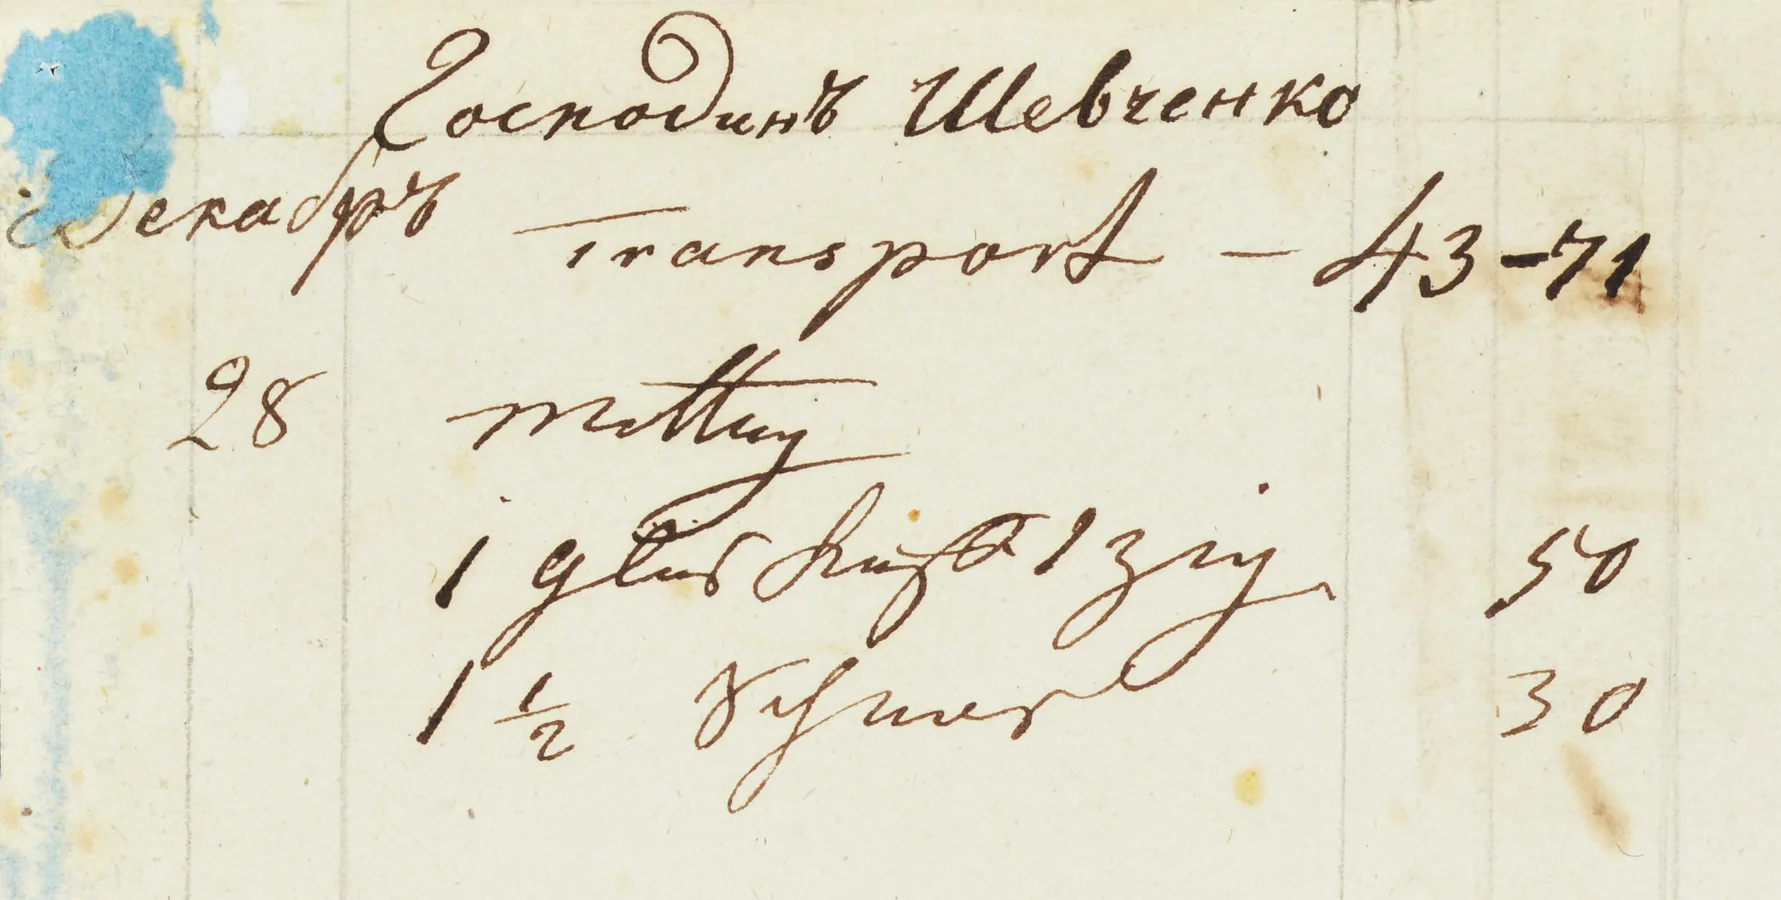 Господинъ Шевченко
Декабръ Transport – 43-71
28 Mittag
1 glas 1 50
1 1/2 Schnaps 30